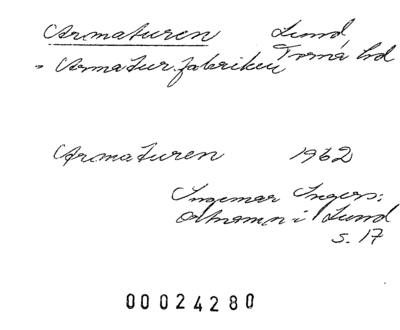 Armaturen Lund,
= Armaturfabriken Torna hd
Armaturen 1962
Ingemar Ingers:
Ortnamn i Lund
s. 17
00024280